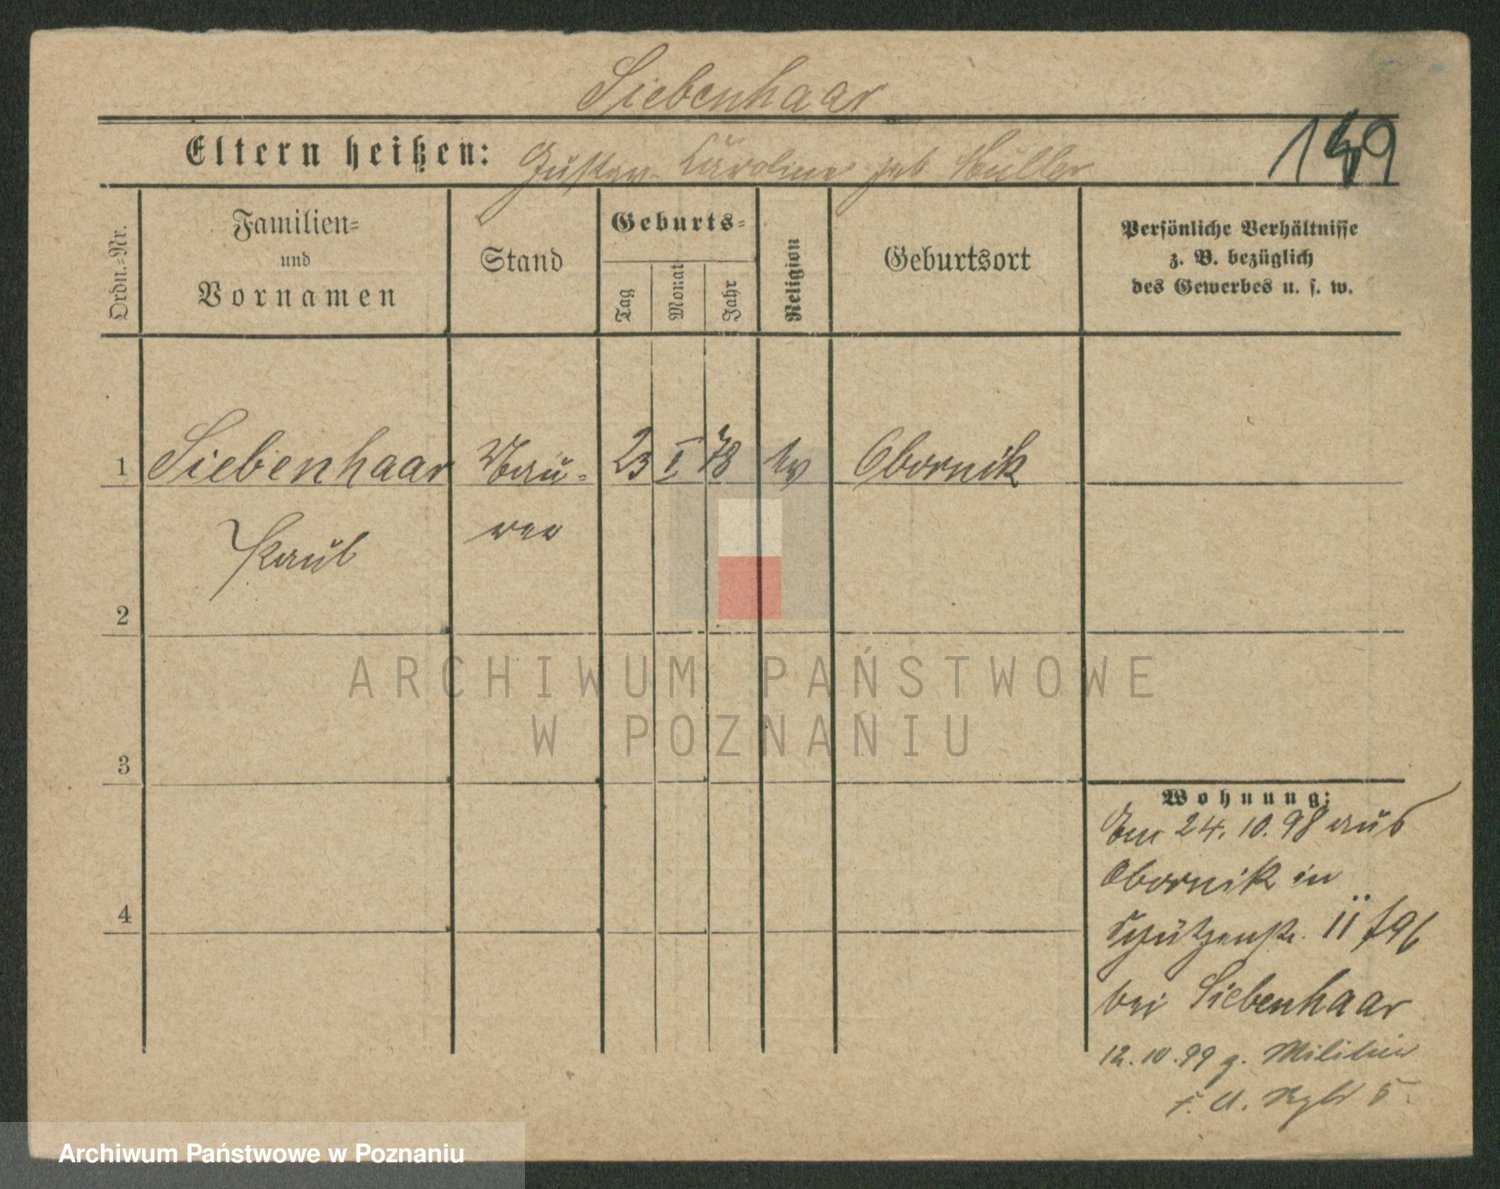 Siebenhaar
Eltern heißen: Gustav Caroline geb Müller
149
Ordn.-Nr.
Familien-
und
Vornamen
Stand
Geburts-
Tag
Monat
Jahr
Religion
Geburtsort
Persönliche Verhältnisse
z. B. bezüglich
des Gewerbes u. s. w.
1 Siebenhaar Mau- 23 I 78 ev Obornik
Paul rer
2
3
4
Wohnung:
24. 10. 98 aus
Obornik in
Schützenstr. 11
bei Siebenhaar
12. 10. 99 z. Militär
5
ARCHIWUM PAŃSTWOWE
W POZNANIU
Archiwum Państwowe w Poznaniu